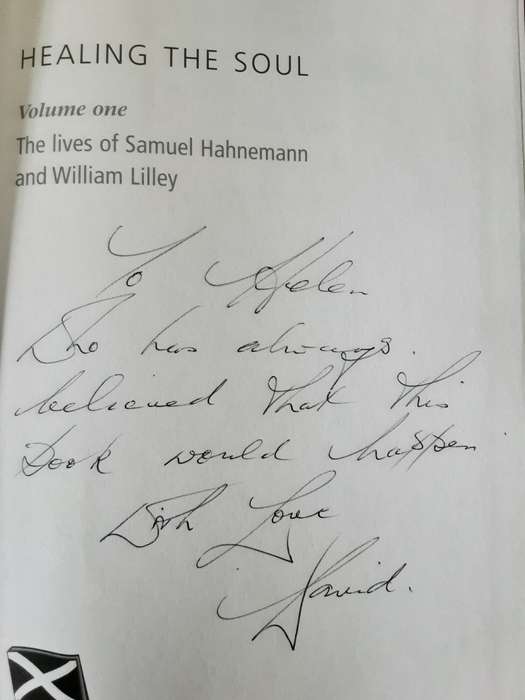 HEALING THE SOUL
Volume one
The lives of Samuel Hahnemann
and William Lilley
To Helen
Who has always
believed that this
book would happen
With Love
David.